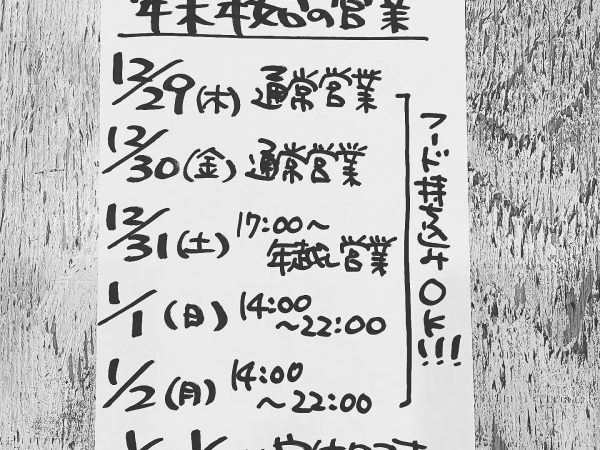 年末年始の営業
12/29(木) 通常営業
12/30(金) 通常営業
12/31(土) 17:00~
年越し営業
1/1(日) 14:00
~22:00
1/2(月) 14:00
~22:00
フード持ち込みOK!!!